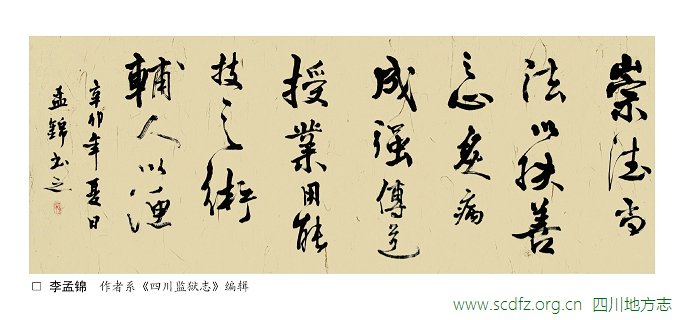 崇德尚
法以扶善
之心灸病
成强傳道
授業用能
技之術
輔人以漁
辛卯年夏日
孟錦书之
□ 李孟锦 作者系《四川监狱志》编辑
www.scdfz.org.cn 四川地方志